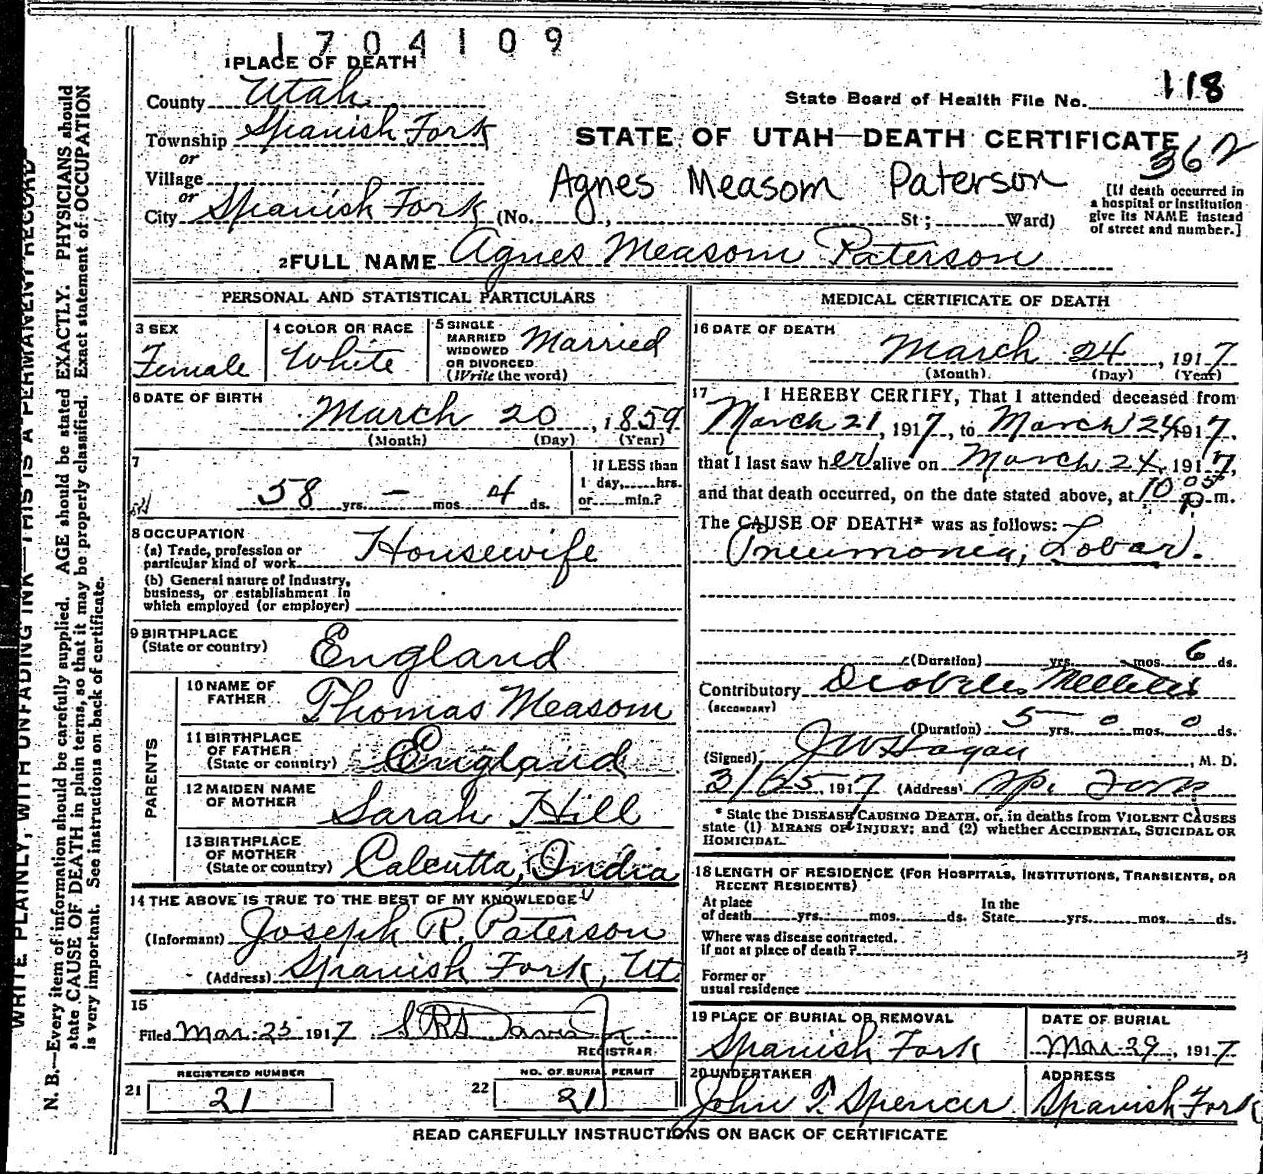 1704109
1 PLACE OF DEATH
County Utah
Township Spanish Fork
or
Village
or
City Spanish Fork (No. , St; Ward)
State Board of Health File No. 118
STATE OF UTAH—DEATH CERTIFICATE
362
Agnes Measom Paterson
[If death occurred in
a hospital or institution
give its NAME instead
of street and number.]
2 FULL NAME Agnes Measom Paterson
PERSONAL AND STATISTICAL PARTICULARS
3 SEX
Female
4 COLOR OR RACE
White
5 SINGLE
MARRIED
WIDOWED
OR DIVORCED
(Write the word)
Married
6 DATE OF BIRTH
March 20, 1859
(Month) (Day) (Year)
7
58 yrs. — mos. 4 ds.
If LESS than
1 day, hrs.
or min.?
8 OCCUPATION
(a) Trade, profession or
particular kind of work Housewife
(b) General nature of industry,
business, or establishment in
which employed (or employer)
9 BIRTHPLACE
(State or country) England
PARENTS
10 NAME OF
FATHER Thomas Measom
11 BIRTHPLACE
OF FATHER
(State or country) England
12 MAIDEN NAME
OF MOTHER Sarah Hill
13 BIRTHPLACE
OF MOTHER
(State or country) Calcutta, India
14 THE ABOVE IS TRUE TO THE BEST OF MY KNOWLEDGE
(Informant) Joseph R. Paterson
(Address) Spanish Fork, Ut
15
Filed Mar. 25 1917 Davis
REGISTRAR.
REGISTERED NUMBER
21 21
NO. OF BURIAL PERMIT
22 21
MEDICAL CERTIFICATE OF DEATH
16 DATE OF DEATH
March 24, 1917
(Month) (Day) (Year)
17 I HEREBY CERTIFY, That I attended deceased from
March 21, 1917, to March 24 1917,
that I last saw her alive on March 24, 1917,
and that death occurred, on the date stated above, at 10 05 p m.
The CAUSE OF DEATH* was as follows:
Pneumonia, Lobar.
(Duration) yrs. mos. 6 ds.
Contributory Diabetes Mellitus
(SECONDARY)
(Duration) 5 yrs. 0 mos. 0 ds.
(Signed) J W Hagan, M. D.
3/25, 1917 (Address) Sp. Fork
* State the DISEASE CAUSING DEATH, or, in deaths from VIOLENT CAUSES
state (1) MEANS OF INJURY; and (2) whether ACCIDENTAL, SUICIDAL OR
HOMICIDAL.
18 LENGTH OF RESIDENCE (FOR HOSPITALS, INSTITUTIONS, TRANSIENTS, OR
RECENT RESIDENTS)
At place
of death yrs. mos. ds.
In the
State yrs. mos. ds.
Where was disease contracted.
if not at place of death?
Former or
usual residence
19 PLACE OF BURIAL OR REMOVAL
Spanish Fork
DATE OF BURIAL
Mar 29, 1917
20 UNDERTAKER
John T. Spencer
ADDRESS
Spanish Fork
READ CAREFULLY INSTRUCTIONS ON BACK OF CERTIFICATE
WRITE PLAINLY, WITH UNFADING INK—THIS IS A PERMANENT RECORD
N. B.—Every item of information should be carefully supplied. AGE should be stated EXACTLY. PHYSICIANS should
state CAUSE OF DEATH in plain terms, so that it may be properly classified. Exact statement of OCCUPATION
is very important. See instructions on back of certificate.